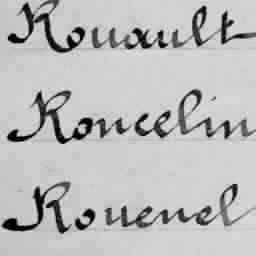 Rouault
Roncelin
Rouenel